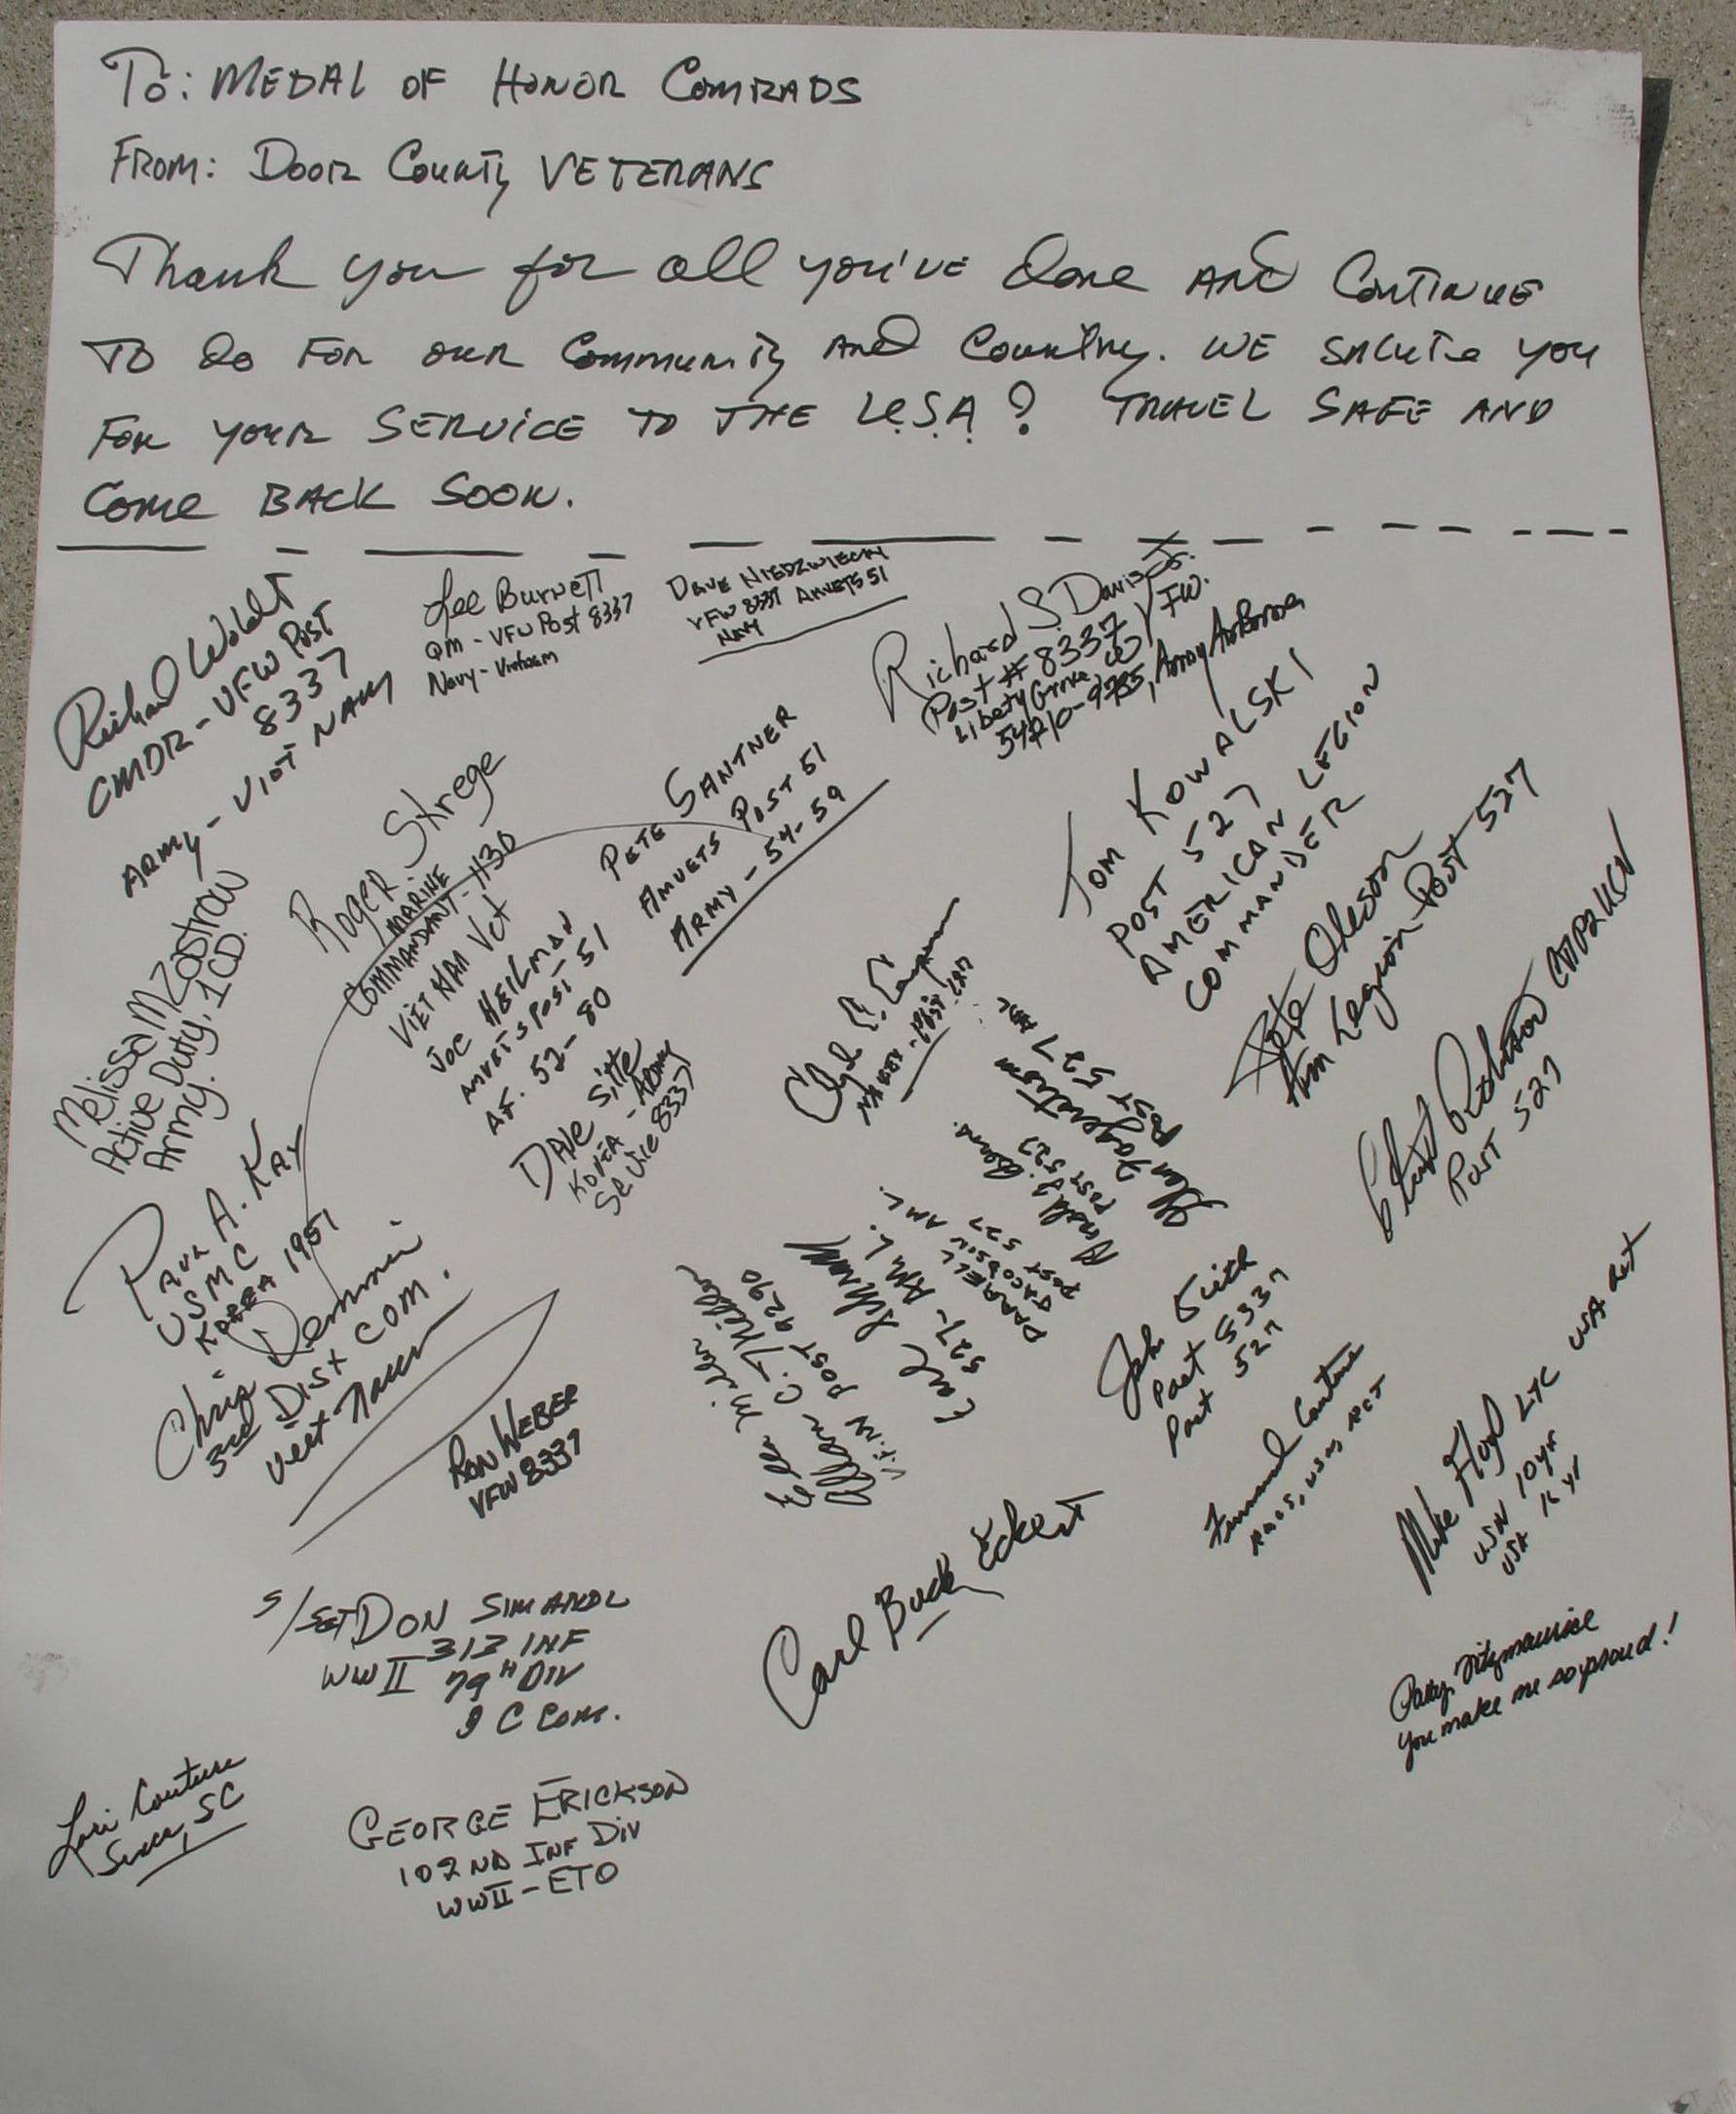 To: MEDAL OF HONOR COMRADS
FROM: DOOR COUNTY VETERANS
Thank you for all you've done AND CONTINUE
TO do FOR OUR Community And Country. WE SALUTE you
FOR YOUR SERVICE TO THE U.S.A! TRAVEL SAFE AND
COME BACK SOON.
Richard
CMDR - VFW POST
8337
ARMY - VIET NAM
Lee Burnett
QM - VFW Post 8337
Navy - Vietnam
DAVE NIEDZWIECKI
VFW 8337 AMVETS 51
NAVY
Richard S. Davis Jr.
Post # 8337 VFW.
Liberty Grove
Army Airborne
TOM KOWALSKI
POST 527
AMERICAN LEGION
COMMANDER
Roger Strege
MARINE
COMMANDANT - 1130
VIET NAM Vet
PETE SANTNER
AMVETS POST 51
ARMY - 54-59
JOE HEILMAN
AMVETS POST 51
AF. 52-80
DAVE Sitte
KOREA - ARMY
Service 8337
Melissa M Zastrow
Active Duty, 1CD.
Army.
PAUL A. KAY
USMC
KOREA 1951
Chris Demmin
3rd Dist COM.
Viet Nam
RON WEBER
VFW 8337
Pete Oleson
Am Legion Post 527
Robinson
Post 527
Post 527 AML
POST 527
DARRELL
JACOBSON
POST 527 AML
Earl
527 - AML.
Allen C. Miller
V.F.W POST 9290
Ellen Miller
Post 527
Couture
USMC RET
Mike Floyd LTC USA Ret
USN 10 yr
USA 16 yr
Carl Buck Eckert
Patty Fitzmaurice
You make me so proud!
S/SGT DON SIMANDL
313 INF
WW II 79TH DIV
Lori Couture
SC
GEORGE ERICKSON
102ND INF DIV
WWII - ETO